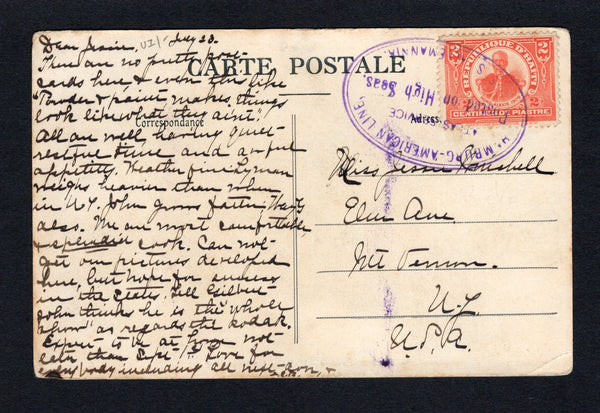 Dear Jessie, VI/- July 23.
There are no pretty post
cards here & even for like
"Powder & paint makes things
look like what they ain't."
All are well, having quiet
restful time and awful
appetites. Weather fine. Lyman
weighs heavier than when
in N.Y. John grows fatter,
also. We are most comfortable,
& splendid cook. Can not
get our pictures developed
here, but hope for success
in the States. Tell Gilbert
John thinks he is the "whole
show" as regards the kodak.
Expect to be at home not
later than Sept. 1st Love for
everybody including all
CARTE POSTALE
Correspondance
Adresse
HAMBURG-AMERICAN LINE,
ATLAS SERVICE
Posted on High Seas.
REPUBLIQUE D'HAITI
2 2
2 2
CENTIMES DE PIASTRE
Miss Jessie
Elm Ave.
Mt Vernon.
N.Y.
U.S.A.